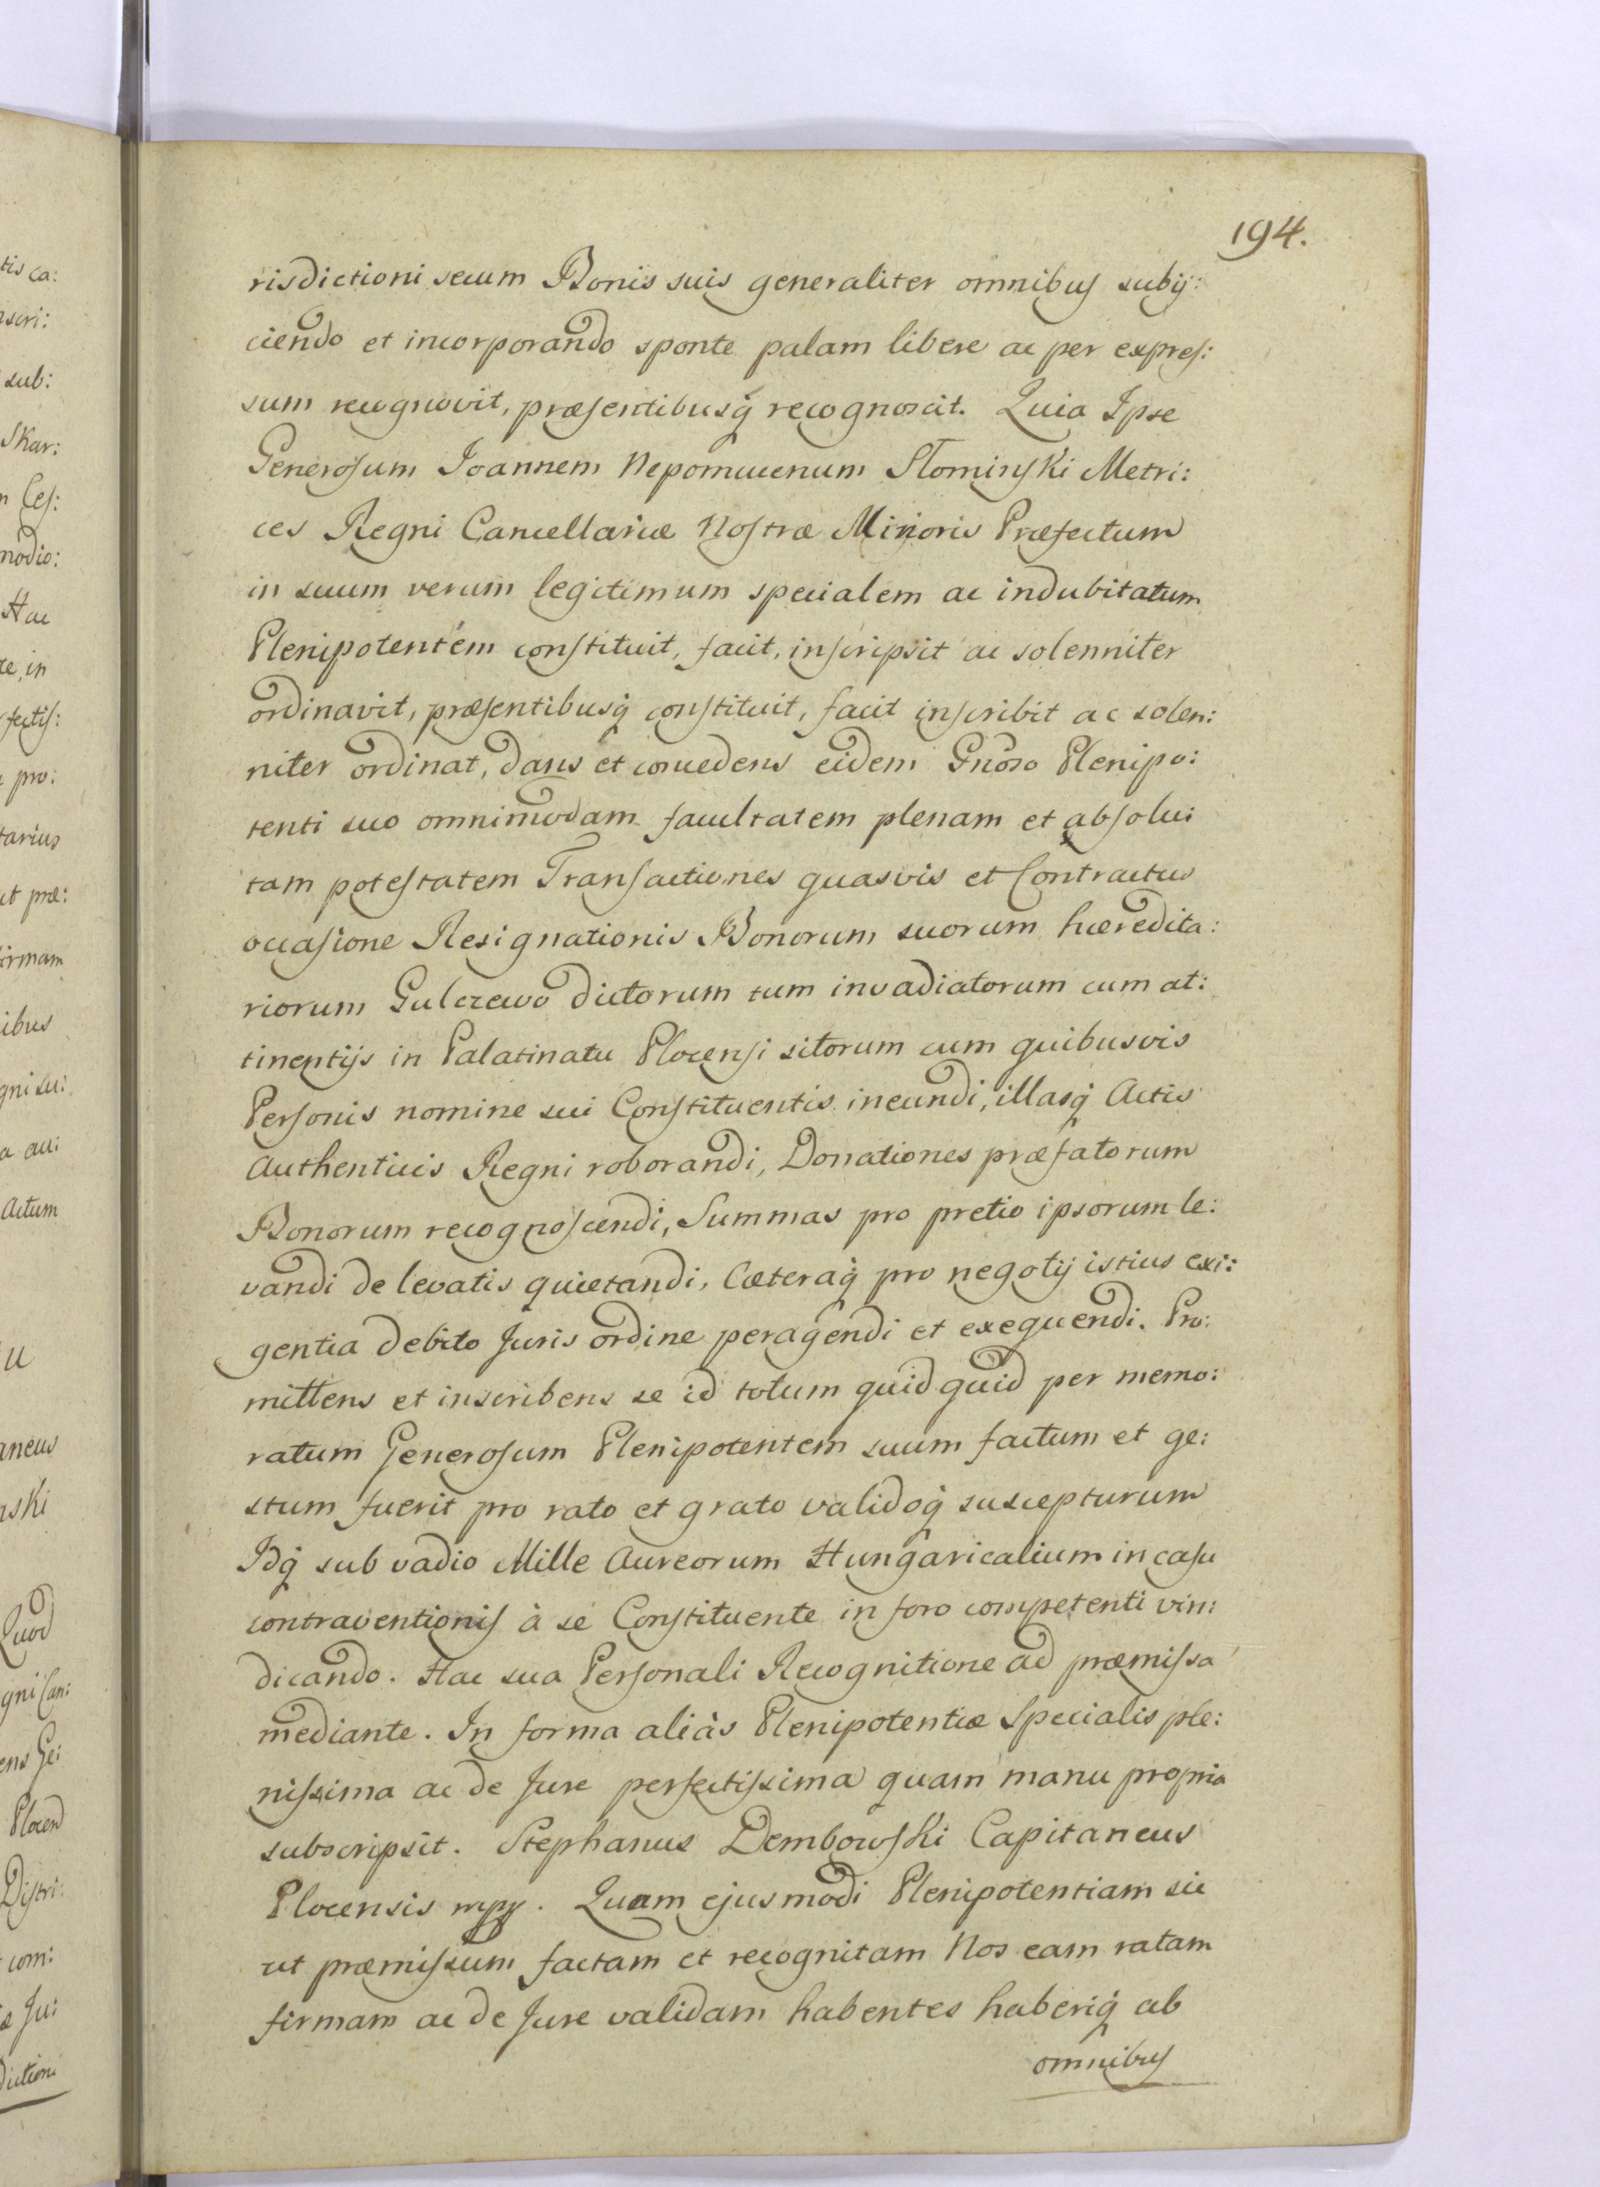 194.
risdictioni secum Bonis suis generaliter omnibus subij:
ciendo et incorporando sponte palam libere ac per expres:
sum recognovit, præsentibusq̃ recognoscit. Quia Ipse
Generosum Joannem Nepomucenum Słominski Metri:
ces Regni Cancellariæ Nostræ Minoris Præfectum
in suum verum legitimum specialem ac indubitatum
Plenipotentem constituit, facit, inscripsit ac solenniter
ordinavit, præsentibusq̃ constituit, facit inscribit ac solen:
niter ordinat, dans et concedens eidem Gnõso Plenipo:
tenti suo omnimodam facultatem plenam et absolu:
tam potestatem Transactiones quasvis et Contractus
occasione Resignationis Bonorum suorum hæredita:
riorum Gulczewo dictorum tum invadiatorum cum at:
tinentijs in Palatinatu Plocensi sitorum cum quibusvis
Personis nomine sui Constituentis ineundi, illasq̃ Actis
Authenticis Regni roborandi, Donationes præfatorum
Bonorum recognoscendi, Summas pro pretio ipsorum le:
vandi de levatis quietandi, Cæteraq̃ pro negotij istius exi:
gentia debito Juris ordine peragendi et exequendi. Pro:
mittens et inscribens se id totum quidquid per memo:
ratum Generosum Plenipotentem suum factum et ge:
stum fuerit pro rato et grato validoq̃ suscepturum
Idq̃ sub vadio Mille Aureorum Hungaricalium in casu
contraventionis à se Constituente in foro competenti vin:
dicando. Hac sua Personali Recognitione ad præmissa
mediante. In forma aliàs Plenipotentiæ Specialis ple:
nissima ac de Jure perfectissima quam manu propria
subscripsit. Stephanus Dembowski Capitaneus
Plocensis mpp. Quam ejusmodi Plenipotentiam sic
ut præmissum factam et recognitam Nos eam ratam
firmam ac de Jure validam habentes haberiq̃ ab
omnibus